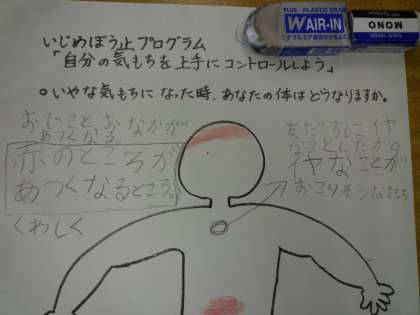 いじめぼう止プログラム
「自分の気もちを上手にコントロールしよう」
○いやな気もちになった時、あなたの体はどうなりますか。
おでこと、おなかが
あつくなる。
赤のところが
あつくなるところ。
くわしく
友だちにイヤ
なことしたから
イヤなことが
おこりそうな気もち
PLUS PLASTIC ERASER
W AIR-IN
Tombow
MONO